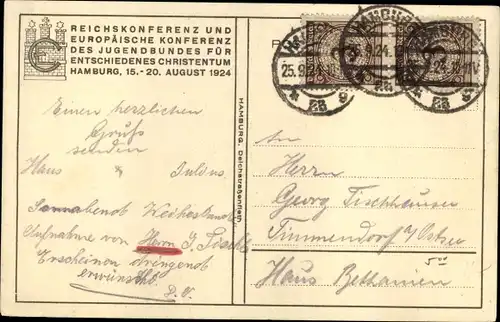 REICHSKONFERENZ UND
EUROPÄISCHE KONFERENZ
DES JUGENDBUNDES FÜR
ENTSCHIEDENES CHRISTENTUM
HAMBURG, 15.-20. AUGUST 1924
HAMBURG
25.9.24
Einen herzlichen
Gruß
senden
Hans Julius.
Sonnabend
Aufnahme von Herrn J.
Erscheinen dringend
erwünscht.
HAMBURG, Deichstraßenfleth
An
Herrn
Georg Tischhauser
Timmendorf a/Ostsee
Haus Bethanien